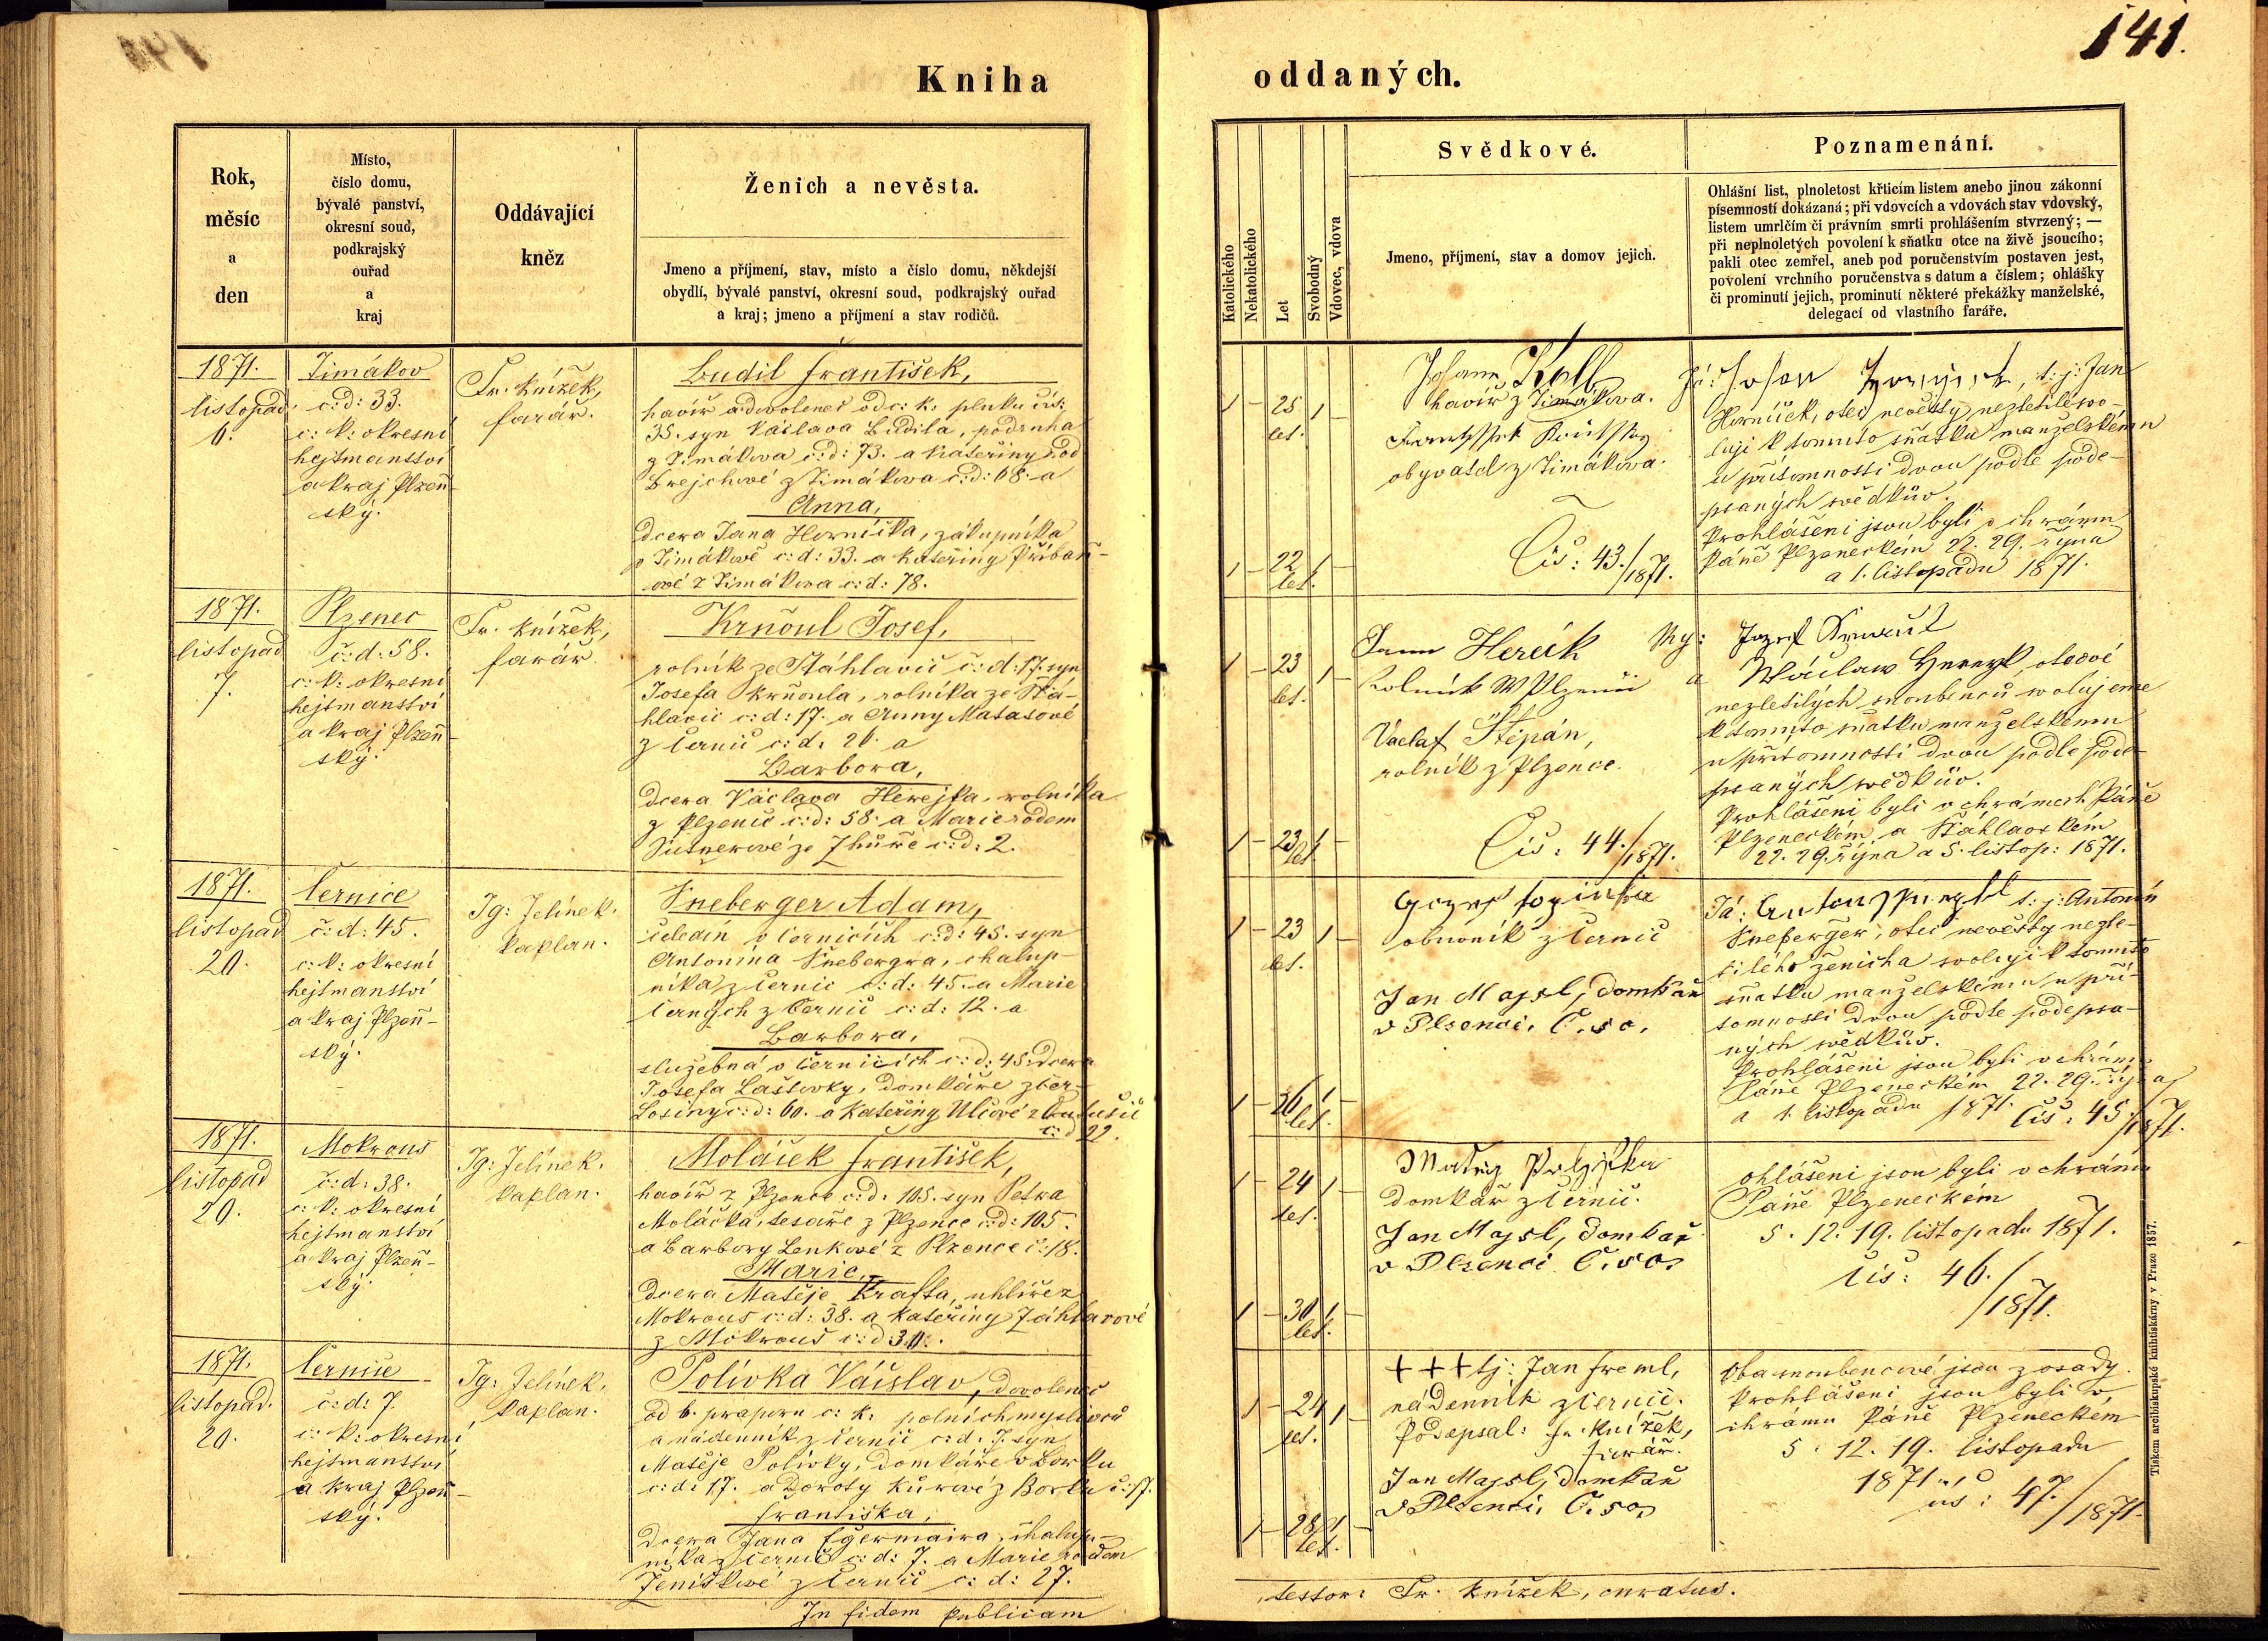 141.
Kniha
oddaných.
Rok,
měsíc
a
den
Místo,
číslo domu,
bývalé panství,
okresní soud,
podkrajský
ouřad
a
kraj
Oddávající
kněz
Ženich a nevěsta.
Jmeno a příjmení, stav, místo a číslo domu, někdejší
obydlí, bývalé panství, okresní soud, podkrajský ouřad
a kraj; jmeno a příjmení a stav rodičů.
Katolického
Nekatolického
Let
Svobodný
Vdovec, vdova
Svědkové.
Jmeno, příjmení, stav a domov jejich.
Poznamenání.
Ohlášní list, plnoletost křticím listem anebo jinou zákonní
písemností dokázaná; při vdovcích a vdovách stav vdovský,
listem umrlčím či právním smrti prohlášením stvrzený; —
při neplnoletých povolení k sňatku otce na živě jsoucího;
pakli otec zemřel, aneb pod poručenstvím postaven jest,
povolení vrchního poručenstva s datum a číslem; ohlášky
či prominutí jejich, prominutí některé překážky manželské,
delegací od vlastního faráře.
1871.
listopad
6.
Timákov
č:d: 33.
c: k: okresní
hejtmanství
a kraj Plzeň-
ský.
Fr. Knížek,
farář.
Budil František,
havíř a dovolenec od c: k: pluku čís:
35. syn Václava Budila, podruha
z Timákova č:d: 73. a Kateřiny rod
Brejchové z Timákova č:d: 68. a
Anna,
dcera Jana Horníčka, zákupníka
v Timákově č:d: 33. a Kateřiny Přibáň-
ové z Timákova č:d: 78.
1 – 25 1 –
let.
1 – 22 1 –
let.
Johann Kolb
havíř z Timákova.
obyvatel z Timákova.
Čís: 43./1871.
Já: t: j: Jan
Horníček, otec nevěsty nezletilé svo-
luji k tomuto sňatku manželskému
u přítomnosti dvou podle pode-
psaných svědkův.
Prohlášeni jsou byli v chrámu
Páně Plzeneckém 22. 29. října
a 1. listopadu 1871.
1871.
listopad
7.
Plzenec
č:d: 58.
c: k: okresní
hejtmanství
a kraj Plzeň-
ský.
Fr. Knížek,
farář.
Krňoul Josef,
rolník ze Šťáhlavic č:d: 17. syn
Josefa Krňoula, rolníka ze Šťá-
hlavic č:d: 17. a Anny Matasové
z Černic č:d: 26. a
Barbora,
dcera Václava Herejka, rolníka
z Plzence č:d: 58. a Marie rodem
ze Zhůře č:d: 2.
1 – 23 1 –
let.
1 – 23 1 –
let.
Jann Hereik
Rolník W Plzenii
Václaf Štěpán,
rolník z Plzence.
Čís: 44./1871.
My: Jozef
a Wáclaw, otcové
nezletilých snoubenců svolujeme
k tomuto sňatku manželskému
u přítomnosti dvou podle pode-
psaných svědkův.
Prohlášeni byli v chrámech Páně
Plzeneckém a Šťáhlavském
22. 29. října a 5. listop: 1871.
1871.
listopad
20.
Černice
č:d: 45.
c: k: okresní
hejtmanství
a kraj Plzeň-
ský.
Ig: Jelínek.
kaplan.
Šneberger Adam,
čeledín v Černicích č:d: 45. syn
Antonína Šnebergra, chalup-
níka z Černic č:d: 45. a Marie
Černých z Černic č:d: 12. a
Barbora,
služebná v Černicích č:d: 45. dcera
Josefa Laštovky, domkáře z Ter-
Losiny č:d: 60. a Kateřiny
č:d 22.
1 – 23 1 –
let.
1 – 36 1 –
let.
obuvník z Černic
Jan Majsl, domkař
v Plsenci. Č. 50.
Já: t: j: Antonín
Šneberger, otec nevěsty nezle-
tilého ženicha svoluji k tomuto
sňatku manželskému u pří-
tomnosti dvou podle podepsa-
ných svědkův.
Prohlášeni jsou byli v chrámu
Páně Plzeneckém 22. 29. října
a 1. listopadu 1871. Čís: 45./1871.
1871.
listopad
20.
Mokrous
č:d: 38.
c: k: okresní
hejtmanství
a kraj Plzeň-
ský.
Ig: Jelínek.
kaplan.
Moláček František,
havíř z Plzence č:d: 105. syn Petra
Moláčka, tesaře z Plzence č:d: 105.
a Barbory Lenkové z Plzence č: 18.
Marie,
dcera Matěje Krafta, uhlíře z
Mokrous č:d: 38. a Kateřiny Záhlavové
z Mokrous č:d:
1 – 24 1 –
let.
1 – 30 1 –
let.
Matěj
domkář z Černic.
Jan Majsl, domkař
v Plsenci Č. 50.
ohlášeni jsou byli v chrámu
Páně Plzeneckém
5. 12. 19. listopadu 1871.
čís: 46./1871.
1871.
listopad.
20.
Černice
č:d: 7.
c: k: okresní
hejtmanství
a kraj Plzeň-
ský.
Ig: Jelínek.
kaplan.
Polívka Václav, dovolenec
od 6. praporu c: k: polních myslivců
a nádenník z Černic č:d: 7. syn
Matěje Polívky, domkáře v Borku
č:d: 17. a Doroty Kůrové z Borku č: 17.
Františka,
dcera Jana Egermaira, chalup-
níka z Černic č:d: 7. a Marie rodem
Ženíškové z Černic č: d: 27.
1 – 24 1 –
let.
1 – 28 1 –
let.
+++ tj: Jan Freml,
nádenník z Černic.
Podepsal: Fr. Knížek,
farář.
Jan Majsl, domkař
v Plsenci, Č. 50,
Oba snoubencové jsou z osady.
Prohlášeni jsou byli v
chrámu Páně Plzeneckém
5. 12. 19. listopadu
1871.
čís: 47./1871.
In fidem publicam
testor: Fr. Knížek, curatus.
Tiskem arcibiskupské knihtiskárny v Praze 1857.